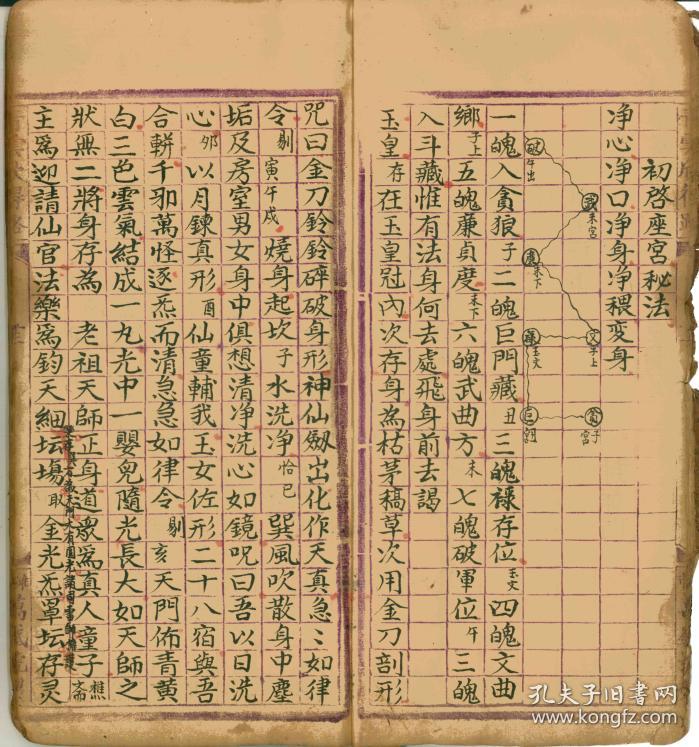 初啓座宮秘法
净心净口净身净稞变身
破午出
武未宮
廉未下
文子上
祿玉文
巨丑
貪子宮
一魄入貪狼子二魄巨門藏丑三魄祿存位玉文四魄文曲
鄉子上五魄廉貞度未下六魄武曲方未七魄破軍位午三魄
入斗藏惟有法身何去處飛身前去謁
玉皇存在玉皇冠內次存身為枯茅稿草次用金刀剖形
咒曰金刀鈴鈴碎破身形神仙劔出化作天真急〻如律
令剔寅午戌燒身起坎子水洗净恰巳巽風吹散身中塵
垢及房室男女身中俱想清净洗心如鏡咒曰吾以日洗
心夘以月鍊真形酉仙童輔我玉女佐形二十八宿與吾
合軿千邪萬怪逐炁而清急急如律令剔亥天門佈青黃
白三色雲氣結成一丸光中一嬰兒隨光長大如天師之
狀無二將身存為老祖天師正身道衆為真人童子樵斋
主為迎請仙官法樂為鈞天細坛塲取金光炁罩坛存灵
孔夫子旧书网
www.kongfz.com